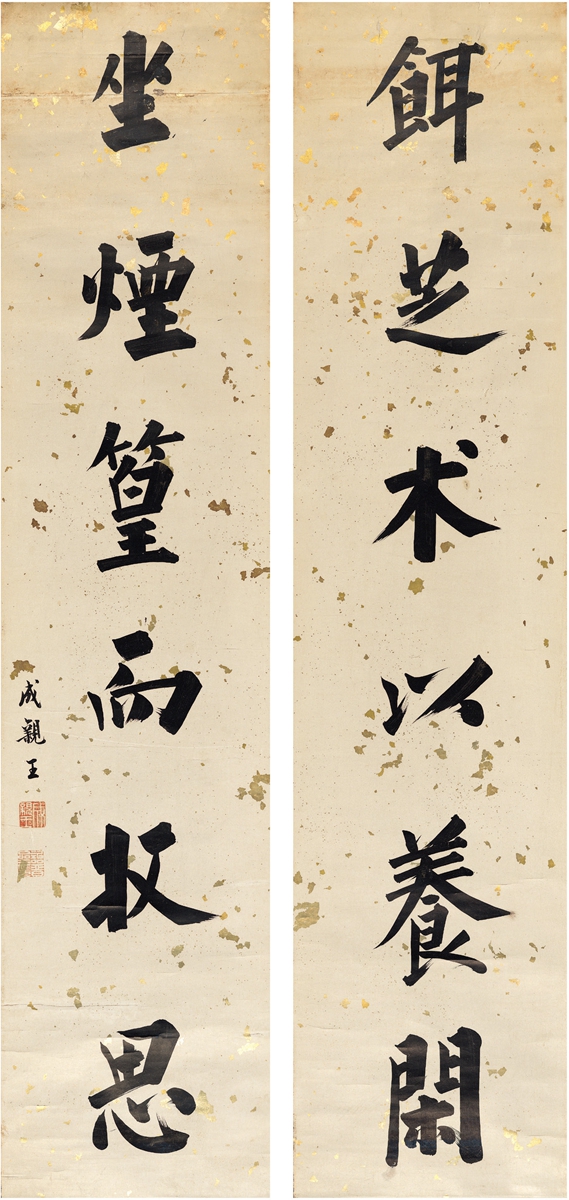 餌芝术以養閑
坐煙篁而收思
成親王